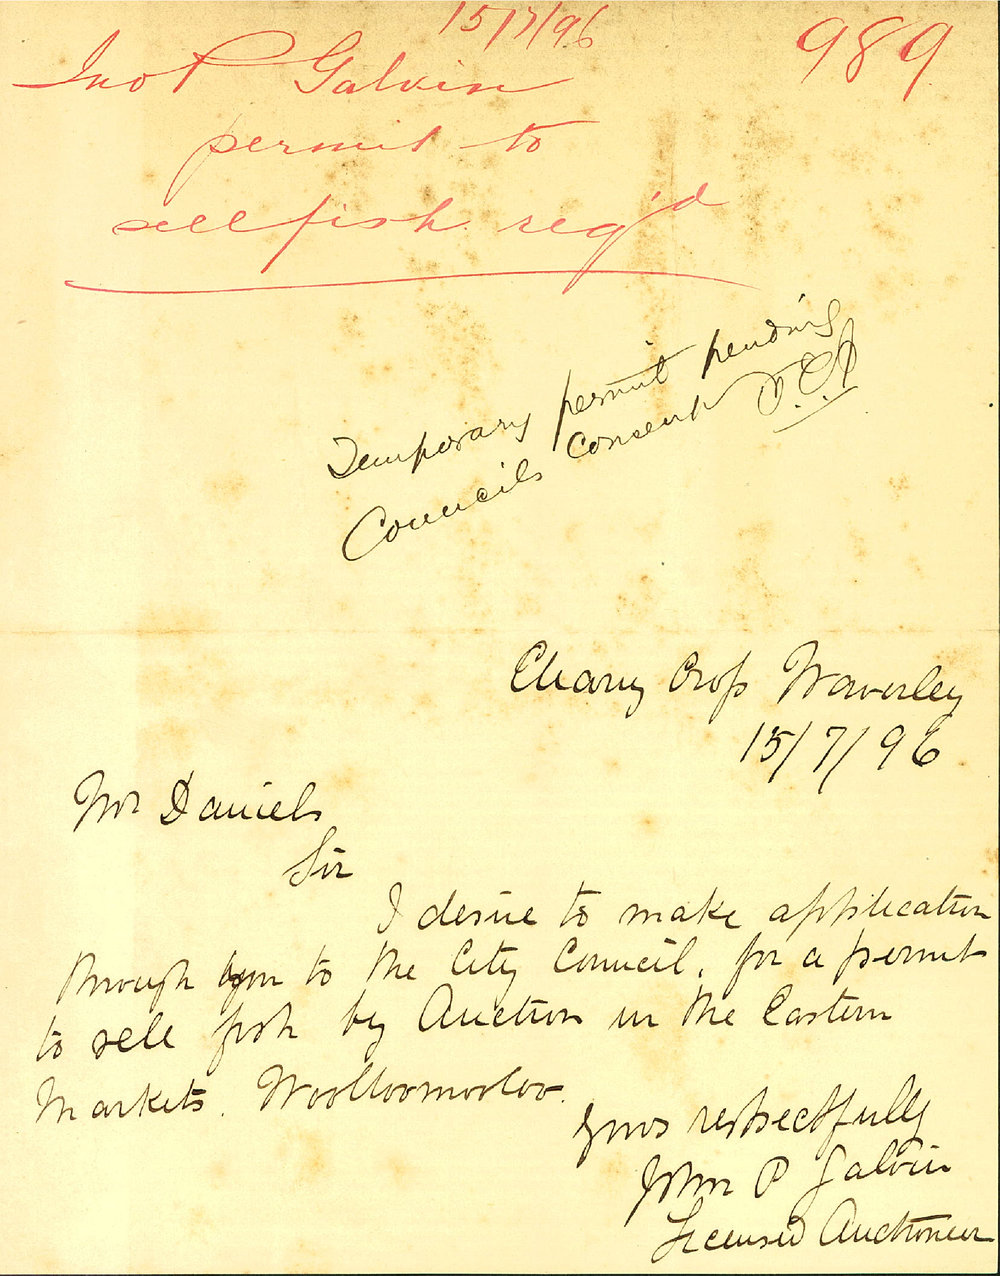 15/7/96
989
Jno P Galvin
permit to
sell fish reqd
Temporary permit pending
Councils Consent
Waverley
15/7/96
Mr Daniels
Sir
I desire to make application
through you to the City Council, for a permit
to sell fish by Auction in the Eastern
Markets. Woolloomooloo.
Yours respectfully
John P Galvin
Licensed Auctioneer